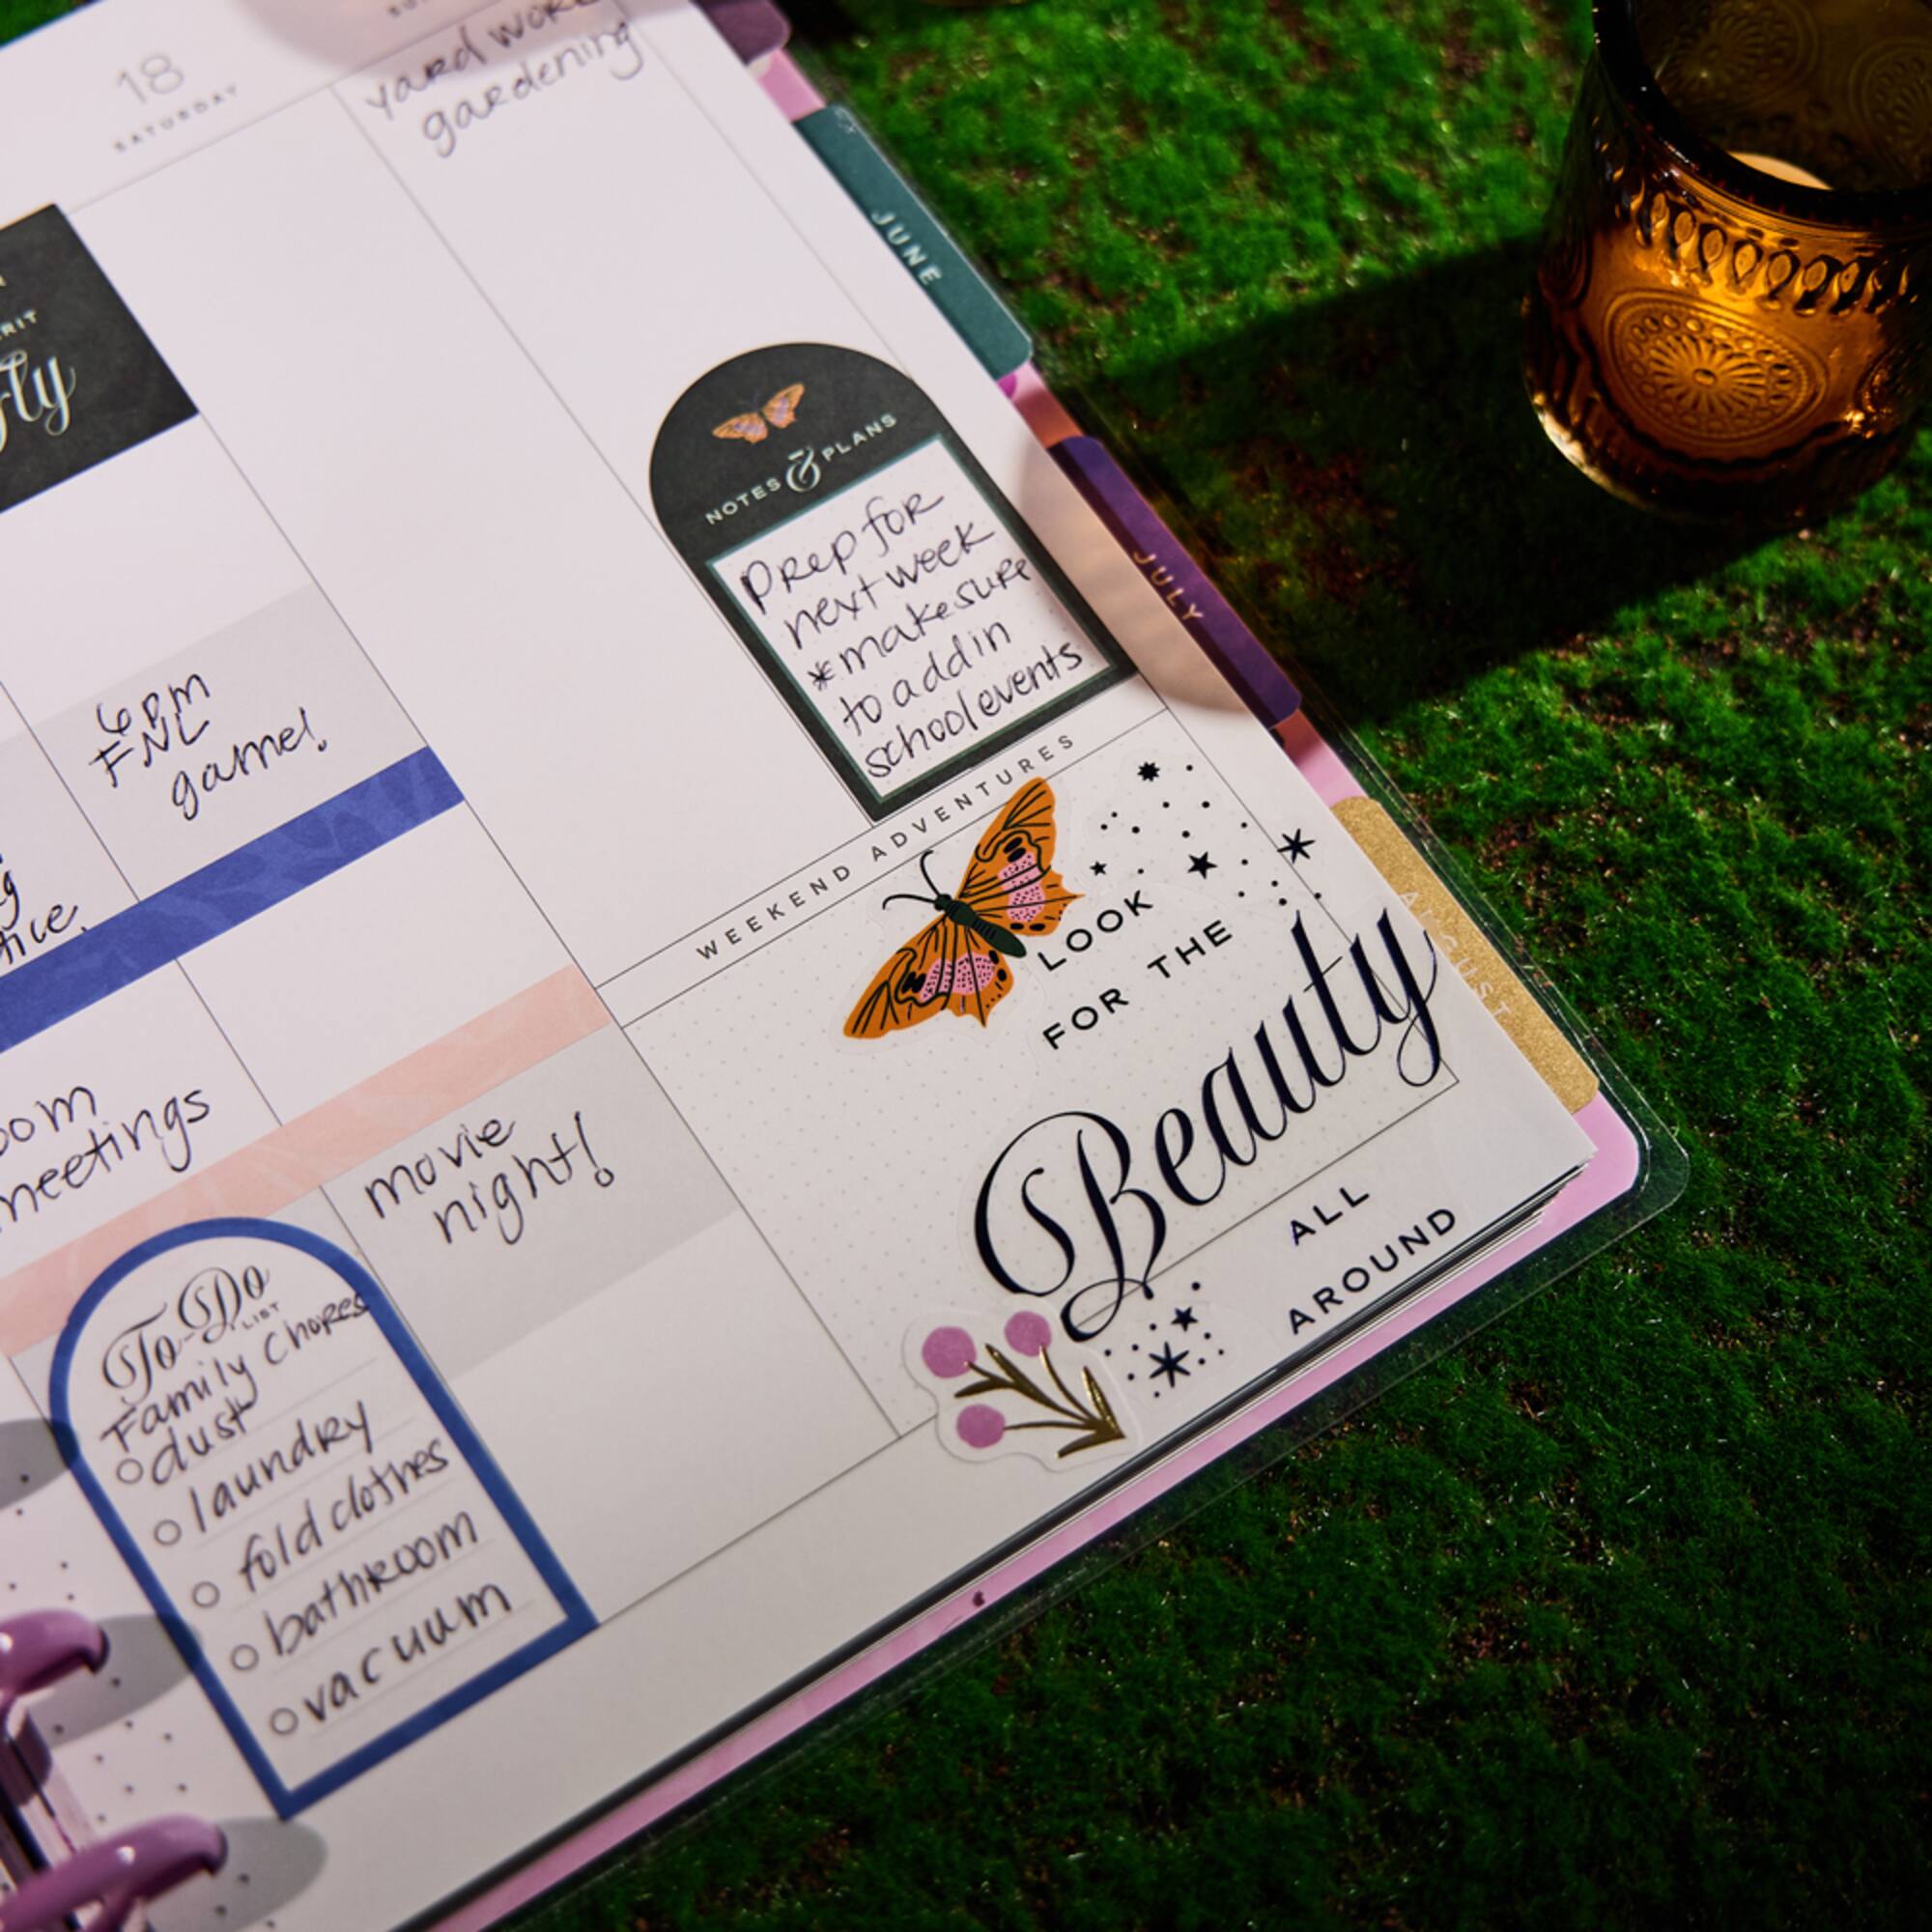 18
SATURDAY
yard work
gardening
fly
6pm
FNL
game!
meetings
movie
night!
To-Do
LIST
Family Chores
dust
laundry
fold clothes
bathroom
vacuum
NOTES & PLANS
Prep for
next week
*make sure
to add in
school events
WEEKEND ADVENTURES
LOOK
FOR THE
Beauty
ALL
AROUND
JUNE
JULY
AUGUST